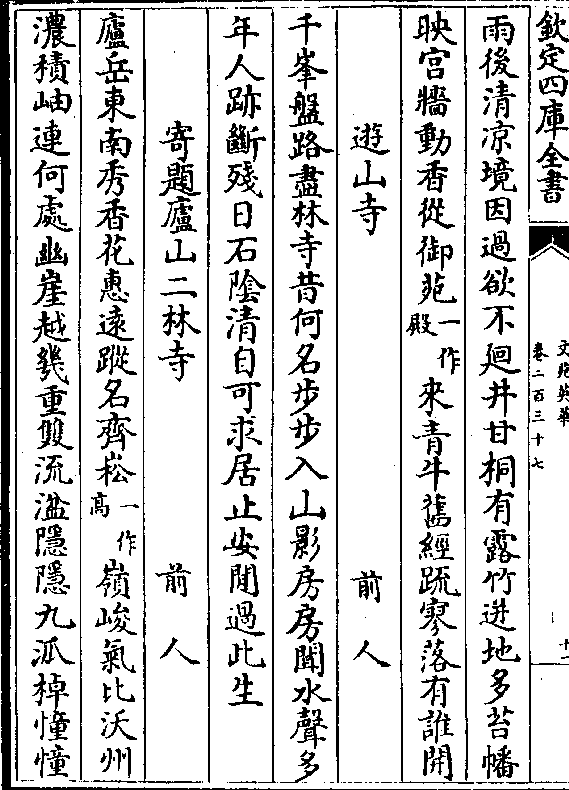 欽定四庫全書
文苑英華
卷二百三十七
十一
雨後清凉境因過欲不廻井甘桐有露竹迸地多苔幡
映宫牆動香從御苑一作殿來青牛舊經疏寥落有誰開
遊山寺 前人
千峯盤路盡林寺昔何名步步入山影房房聞水聲多
年人跡斷殘日石陰清自可求居止安閒過此生
寄題廬山二林寺 前人
廬岳東南秀香花惠遠蹤名齊崧一作高嶺峻氣比沃州
濃積岫連何處幽崖越幾重䨇流湓隱隱九泒棹憧憧